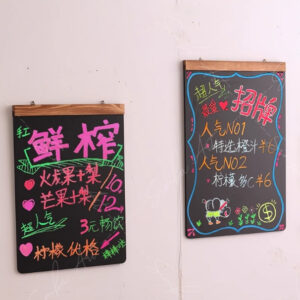 鲜榨
火龙果+梨/10.
芒果+梨/12.
超人气
3元畅饮
柠檬优格
超人气
招牌
人气NO1
特选橙汁¥6
人气NO2
柠檬多C¥6